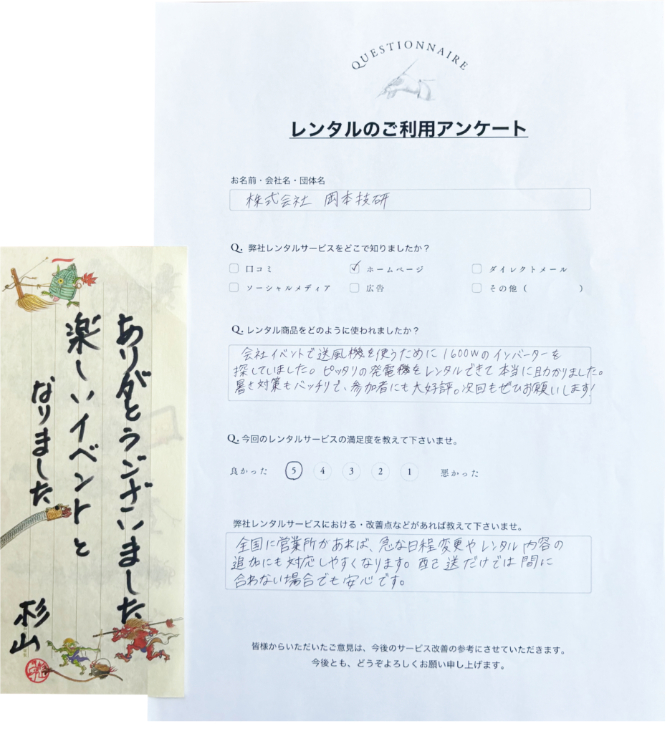 QUESTIONNAIRE
レンタルのご利用アンケート
お名前・会社名・団体名
株式会社 岡本技研
Q. 弊社レンタルサービスをどこで知りましたか？
口コミ
ホームページ
ダイレクトメール
ソーシャルメディア
広告
その他（ ）
Q. レンタル商品をどのように使われましたか？
会社イベントで送風機を使うために1600Wのインバーターを
探していました。ピッタリの発電機をレンタルできて本当に助かりました。
暑さ対策もバッチリで、参加者にも大好評。次回もぜひお願いします!
Q. 今回のレンタルサービスの満足度を教えて下さいませ。
良かった 5 4 3 2 1 悪かった
弊社レンタルサービスにおける・改善点などがあれば教えて下さいませ。
全国に営業所があれば、急な日程変更やレンタル内容の
追加にも対応しやすくなります。配送だけでは間に
合わない場合でも安心です。
皆様からいただいたご意見は、今後のサービス改善の参考にさせていただきます。
今後とも、どうぞよろしくお願い申し上げます。
ありがとうございました
楽しいイベントと
なりました
杉山